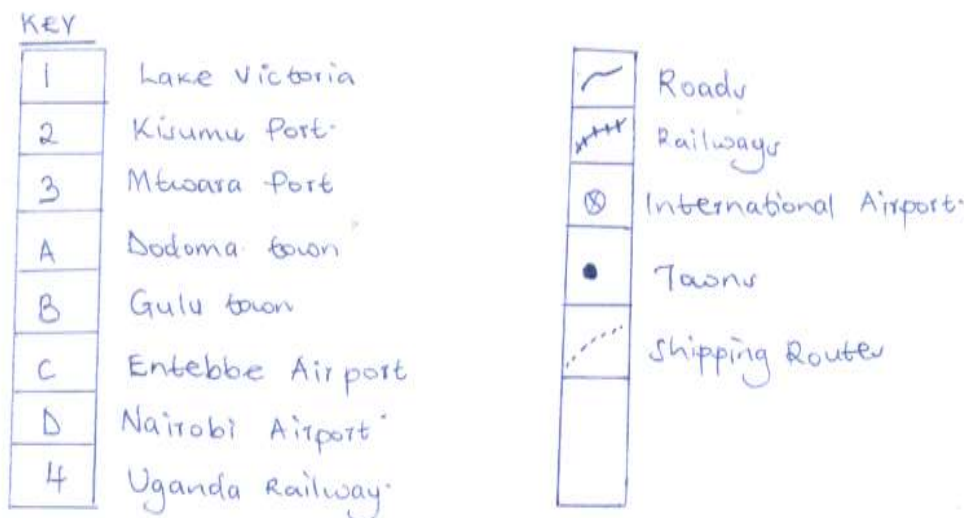 KEY
1 Lake Victoria
2 Kisumu Port.
3 Mtwara Port
A Dodoma town
B Gulu town
C Entebbe Airport
D Nairobi Airport
4 Uganda Railway.
Roads
Railways
International Airport.
Towns
Shipping Routes